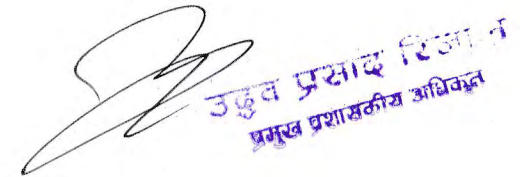 उद्धव प्रसाद
प्रमुख प्रशासकीय अधिकृत